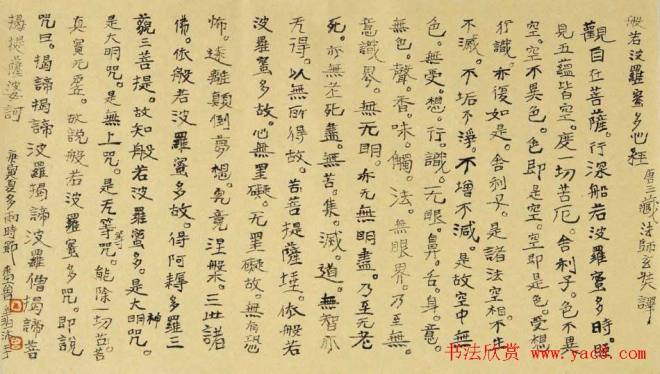 般若波羅蜜多心經 唐三藏法師玄奘譯
觀自在菩薩。行深船若波羅蜜多時。照
見五蘊皆空。度一切苦厄。舍利子。色不異
空。空不異色。色即是空。空即是色。受想
行識。亦復如是。舍利子。是諸法空相。不生
不滅。不垢不淨。不增不減。是故空中無
色。無受。想。行。識。无眼。鼻。舌。身。意。
無色。聲。香。味。觸。法。無眼界。乃至無。
意識界。無无明。亦无無明盡。乃至无老
死。亦無老死盡。無苦。集。滅。道。無智亦
无得。以無所得故。菩提薩埵。依般若
波羅蜜多故。心無罣礙。无罣礙故。無有恐
怖。遠離顛倒夢想。究竟涅槃。三世諸
佛。依般若波羅蜜多故。得阿耨多羅三
藐三菩提。故知般若波羅蜜多。是大神咒。
是大明咒。是無上咒。是无等等咒。能除一切苦
真實不虛。故說般若波羅蜜多咒。即說
咒曰。揭諦揭諦波羅揭諦波羅僧揭諦菩
揭提薩婆訶 庚寅夏多雨時節
书法欣赏 www.yac8.com